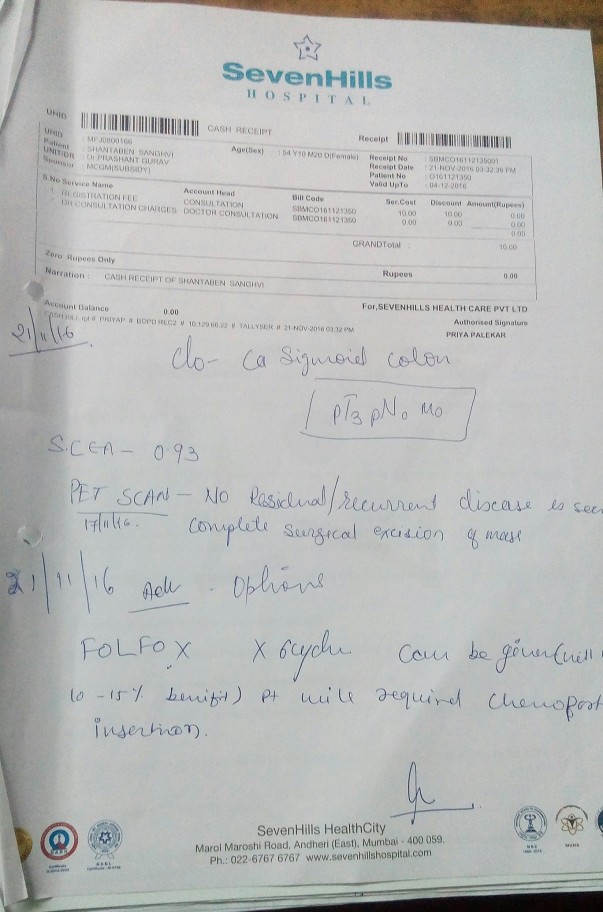 SevenHills
HOSPITAL
UHID
CASH RECEIPT
Receipt
UHID : MFJ0800166
Patient : SHANTABEN SANGHVI
Age(Sex) : 54 Y10 M20 D(Female)
UNIT/DR : Dr.PRASHANT GURAV
Sponsor : MCGM(SUBSIDY)
Receipt No : SBMCO16112135001
Receipt Date : 21-NOV-2016 03:32:36 PM
Patient No : O161121350
Valid UpTo : 04-12-2016
S.No Service Name Account Head Bill Code Ser.Cost Discount Amount(Rupees)
REGISTRATION FEE CONSULTATION SBMCO161121350 10.00 10.00 0.00
DR CONSULTATION CHARGES DOCTOR CONSULTATION SBMCO161121350 0.00 0.00 0.00
0.00
GRANDTotal : 10.00
Zero Rupees Only
Rupees 0.00
Narration : CASH RECEIPT OF SHANTABEN SANGHVI
Account Balance 0.00
For,SEVENHILLS HEALTH CARE PVT LTD
PRIYAP # BOPD REC2 # 10.129.66.22 # TALLYSER # 21-NOV-2016 03:32 PM
Authorised Signature
PRIYA PALEKAR
21/11/16
c/o- Ca Sigmoid colon
pT3 pN0 M0
S.CEA - 0.93
PET SCAN - No Residual/recurrent disease is seen
17/11/16. Complete surgical excision of mass
21/11/16 Adv . Options
FOLFOX X 6cycle can be given (will
10 -15% benifit) pt will required Chemoport
insertion.
SevenHills HealthCity
Marol Maroshi Road, Andheri (East), Mumbai - 400 059.
Ph.: 022-6767 6767 www.sevenhillshospital.com